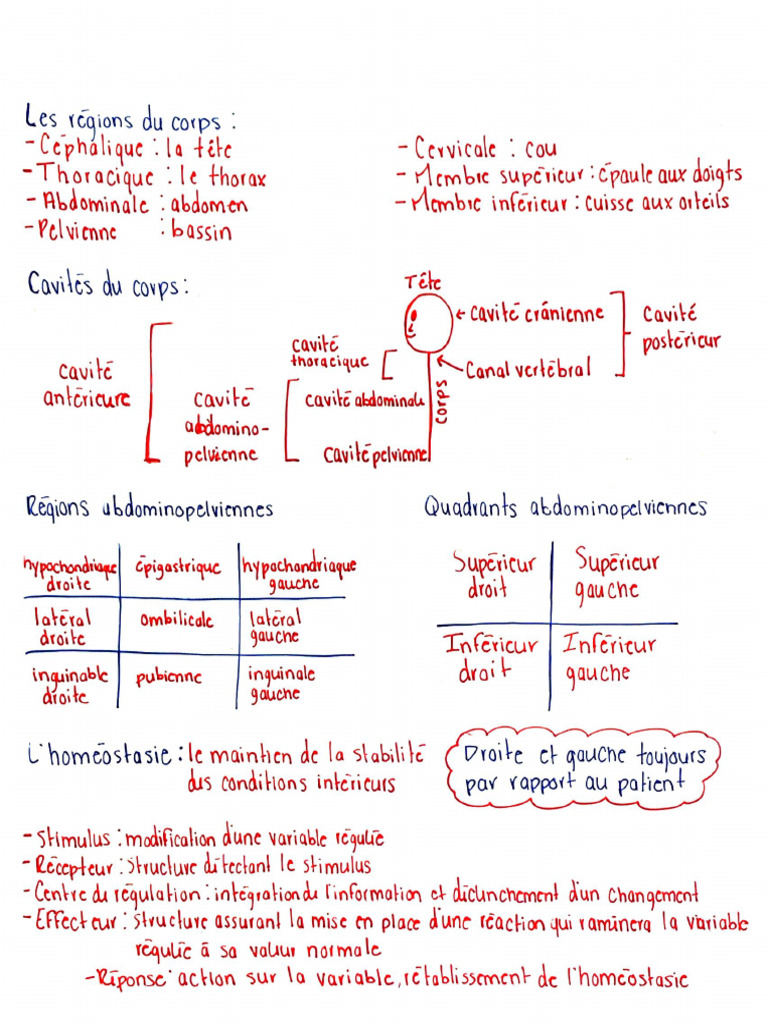 Les régions du corps :
- Céphalique : la tête
- Thoracique : le thorax
- Abdominale : abdomen
- Pelvienne : bassin
- Cervicale : cou
- Membre supérieur : épaule aux doigts
- Membre inférieur : cuisse aux orteils
Cavités du corps :
Tête
cavité crânienne
Canal vertébral
Cavité
postérieur
cavité
thoracique
corps
cavité
antérieure
cavité
abdomino-
pelvienne
cavité abdominale
cavité pelvienne
Régions abdominopelviennes
hypochondriaque
droite
épigastrique
hypochondriaque
gauche
latéral
droite
ombilicale
latéral
gauche
inguinable
droite
pubienne
inguinale
gauche
Quadrants abdominopelviennes
Supérieur
droit
Supérieur
gauche
Inférieur
droit
Inférieur
gauche
L'homéostasie : le maintien de la stabilité
des conditions intérieurs
Droite et gauche toujours
par rapport au patient
- Stimulus : modification d'une variable régulée
- Récepteur : structure détectant le stimulus
- Centre de régulation : intégration de l'information et déclenchement d'un changement
- Effecteur : structure assurant la mise en place d'une réaction qui raménera la variable
régulée à sa valeur normale
- Réponse : action sur la variable, rétablissement de l'homéostasie